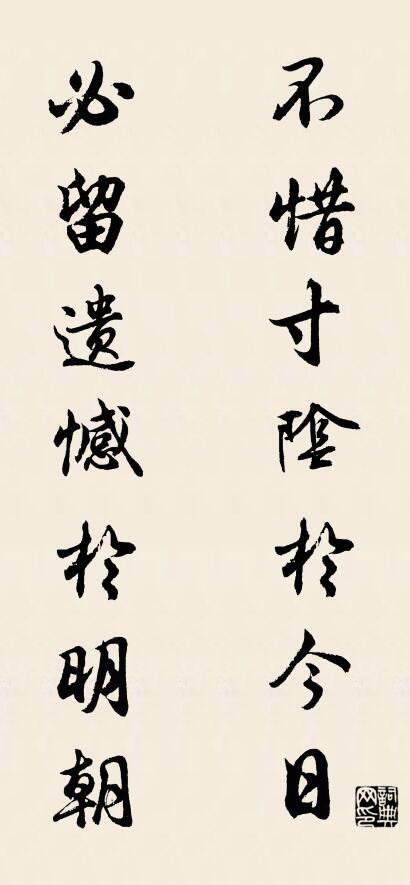 不惜寸陰於今日
必留遺憾於明朝
詞典网印